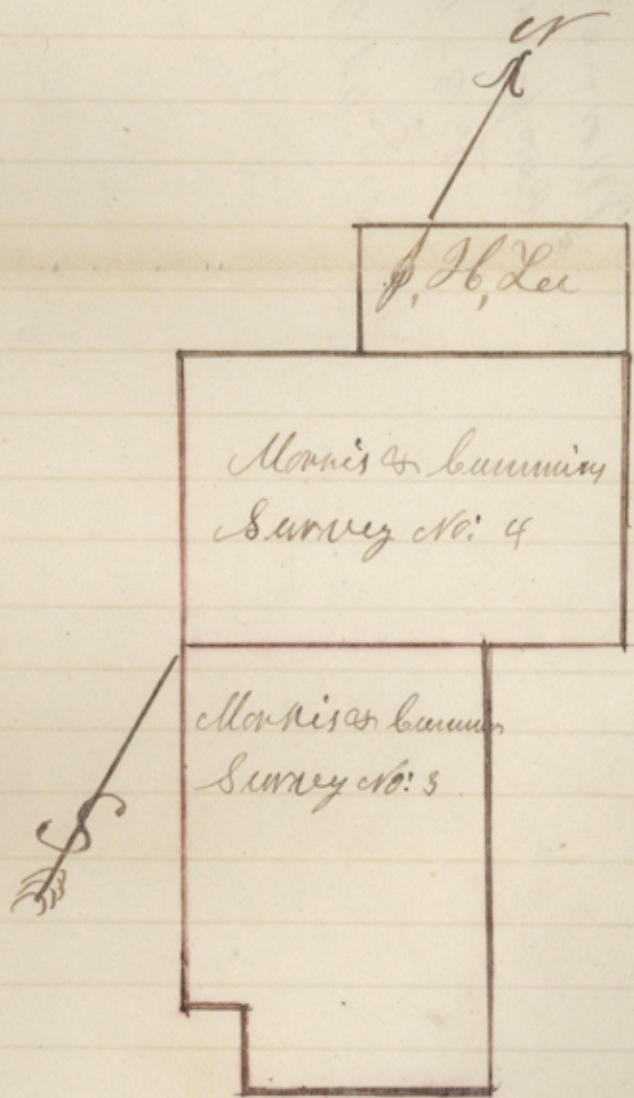 N
P, H, Lee
Morris & Cummins
Survey No: 4
Morris & Cummins
Survey No: 3
S